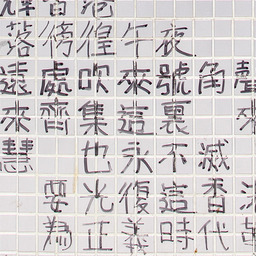 香港
落徬徨午夜
遠處吹來號角聲
來齊集這裏 來
慧 也永不滅
要光復這香港
為正義時代革